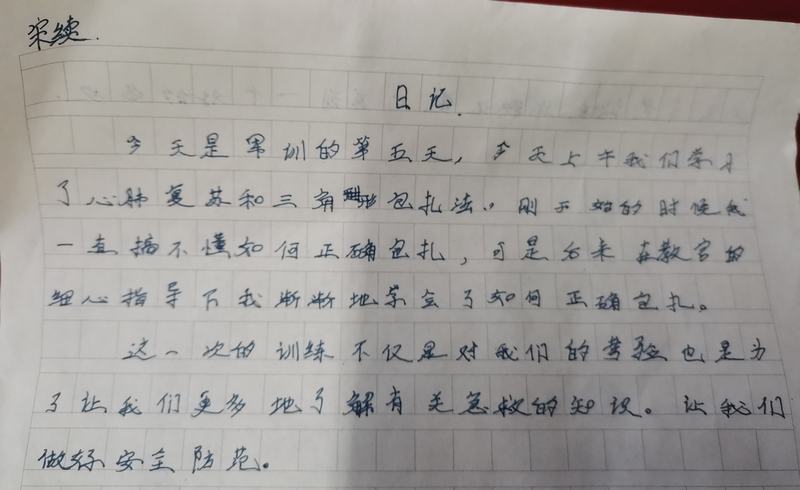 宋续.
日记.
今天是军训的第五天，今天上午我们学习
了心肺复苏和三角包扎法。刚开始的时候我
一直搞不懂如何正确包扎，可是后来在教官的
细心指导下我渐渐地学会了如何正确包扎。
这一次的训练不仅是对我们的考验也是为
了让我们更多地了解有关急救的知识。让我们
做好安全防范。